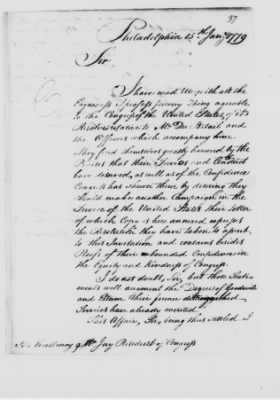 37
Philadelphia 15th Jany 1779
Sir
I have made Use, with all the
Eagerness I profess for every Thing agreable
to the Congress of the United States, of its
Resolves relative to Mr Du
and
the Officers which accompany him.
They find themselves greatly honored by the
Praises that their Services and Conduct
have received, as well as of the Confidence
Congress has shewn them by desiring they
should make another Campaign in the
Service of the United States. Their Letter
of which Copy is here annexed expresses
the Resolution they have taken to
to
this Invitation and contains besides
Proofs of their unbounded Confidence in
the Equity and Kindness of Congress.
I do not doubt, Sir, but those Senti-
ments will augment the Degrees of Goodwill
and Esteem their former distinguished
Services have already merited.
This Affair, Sir, being thus settled I
His Excellency Mr Jay President of Congress